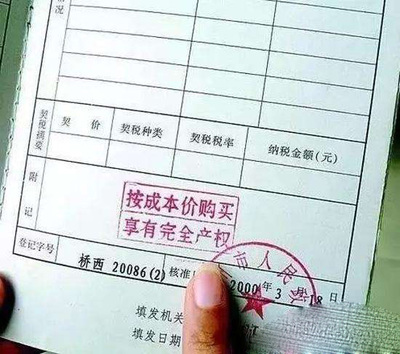 况
契税摘要
契 价 契税种类 契税税率 纳税金额(元)
附记
按成本价购买
享有完全产权
登记字号 桥西 20086(2) 核准 2000年3月18日
市人民
填发机关
填发日期